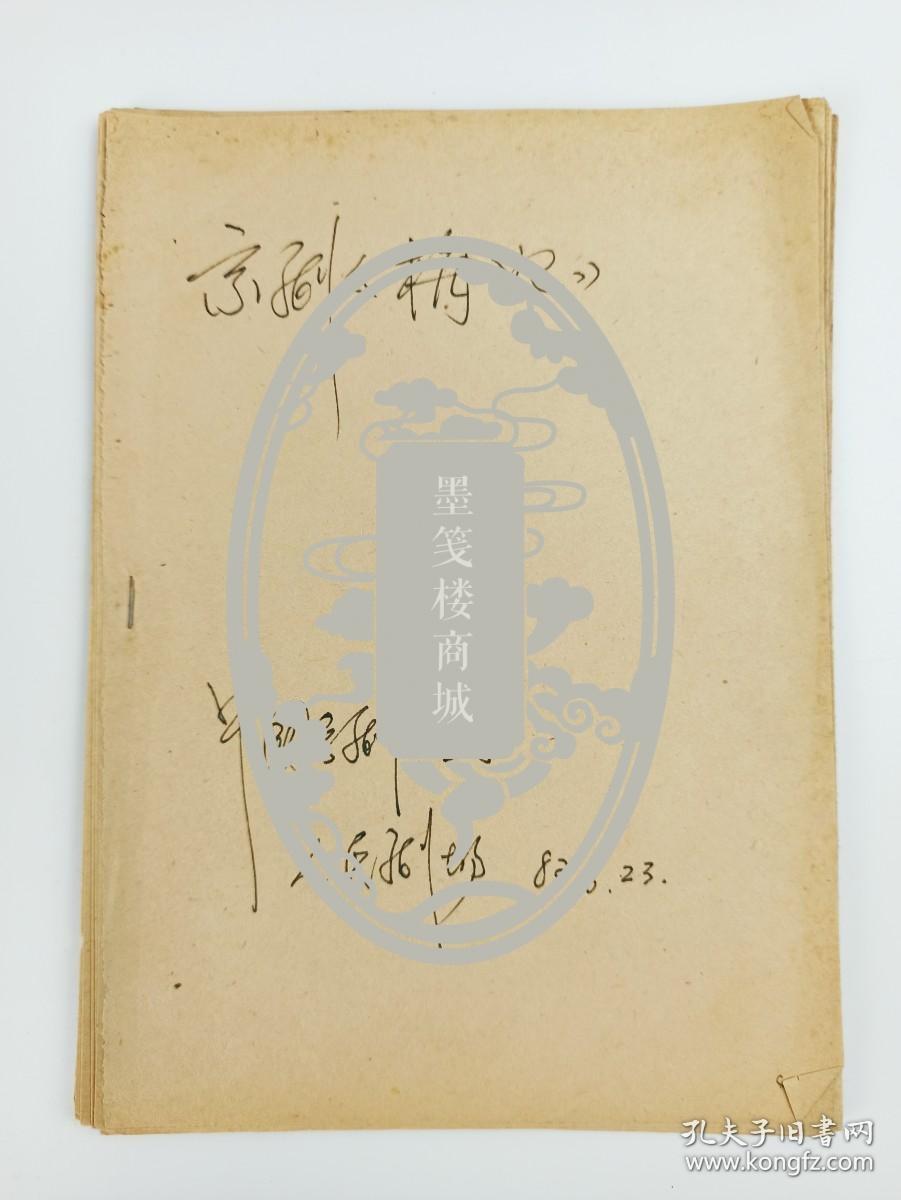 京剧《
墨笺楼商城
中国京剧
人民剧场 8 . 23.
孔夫子旧书网
www.kongfz.com